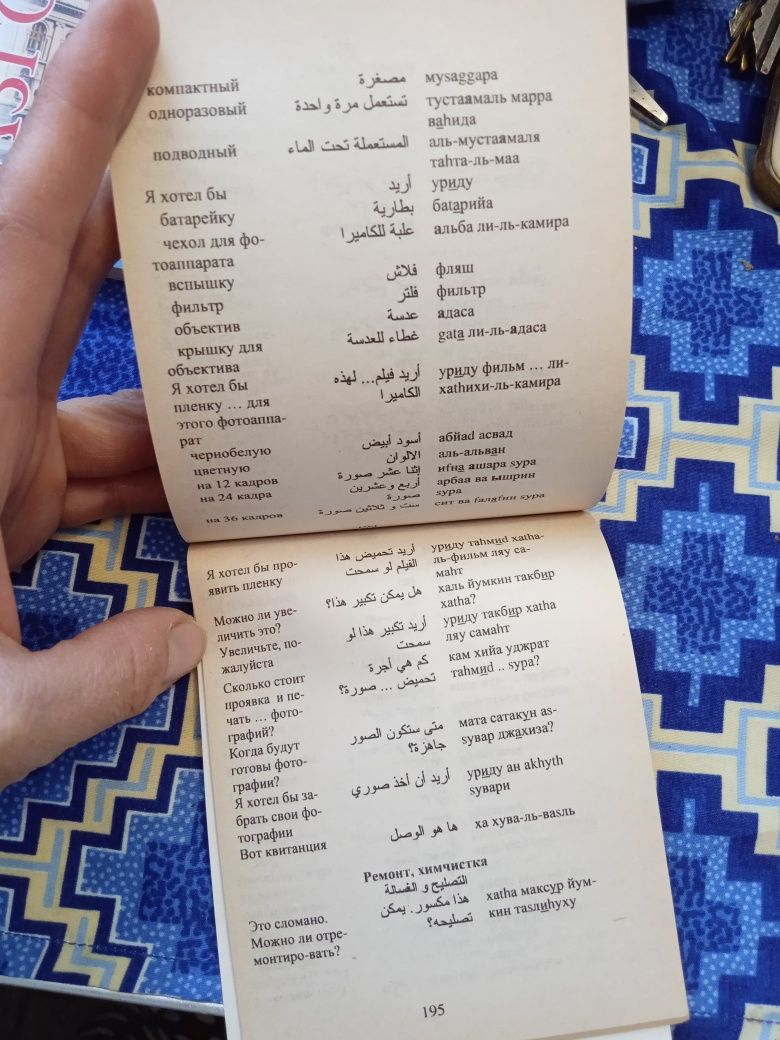 компактный مصغرة муsаggара
одноразовый تستعمل مرة واحدة тустаамаль марра
ваhида
подводный المستعملة تحت الماء аль-мустаамаля
таhта-ль-маа
Я хотел бы أريد уриду
батарейку بطارية баtарийа
чехол для фо- علبة للكاميرا альба ли-ль-камира
тоаппарата
вспышку فلاش фляш
фильтр فلتر фильтр
объектив عدسة адаса
крышку для غطاء للعدسة gаtа ли-ль-адаса
объектива
Я хотел бы أريد فيلم... لهذه уриду фильм … ли-
пленку … для الكاميرا хаthихи-ль-камира
этого фотоаппа-
рат
чернобелую أسود أبيض абйаd асвад
цветную الالوان аль-альван
на 12 кадров إثنا عشر صورة иfна ашара sура
на 24 кадра أربع وعشرين арбаа ва ышрин
صورة sура
на 36 кадров ست و ثلاثين صورة сит ва fаляfин sура
Я хотел бы про- أريد تحميض هذا уриду таhмиd хаthа-
явить пленку الفيلم لو سمحت ль-фильм ляу са-
маhт
Можно ли уве- هل يمكن تكبير هذا؟ халь йумкин такбир
личить это? хаthа?
Увеличьте, по- أريد تكبير هذا لو уриду такбир хаthа
жалуйста سمحت ляу самаhт
Сколько стоит كم هي أجرة кам хийа уджрат
проявка и пе- تحميض ... صورة؟ таhмиd .. sура?
чать … фото-
графий?
Когда будут متى ستكون الصور мата сатакун аs-
готовы фото- جاهزة؟ sувар джаhиза?
графии?
Я хотел бы за- أريد أن أخذ صوري уриду ан akhyth
брать свои фо- sувари
тографии
Вот квитанция ها هو الوصل ха хува-ль-ваsль
Ремонт, химчистка
التصليح و الغسالة
Это сломано. هذا مكسور. يمكن хаthа максур йум-
Можно ли отре- تصليحه؟ кин таsлиhуху
монтиро-вать?
195